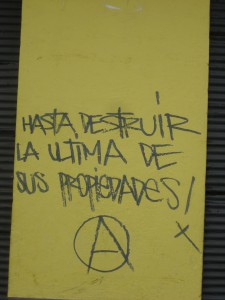 HASTA DESTRUIR
LA ULTIMA DE
SUS PROPIEDADES!
X
A